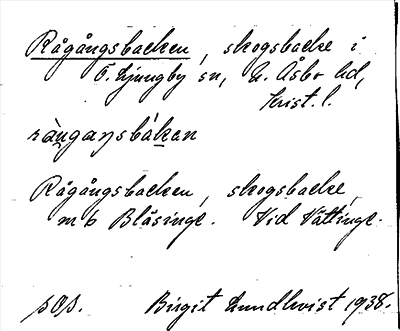 Rågångsbacken, skogsbacke i
Ö. Ljungby sn, N. Åsbo hd,
Krist. l.
råŋgaŋsbakan
Rågångsbacken, skogsbacke,
m ö Blåsinge. Vid Vättinge.
pop. Birgit Lundkvist 1938.